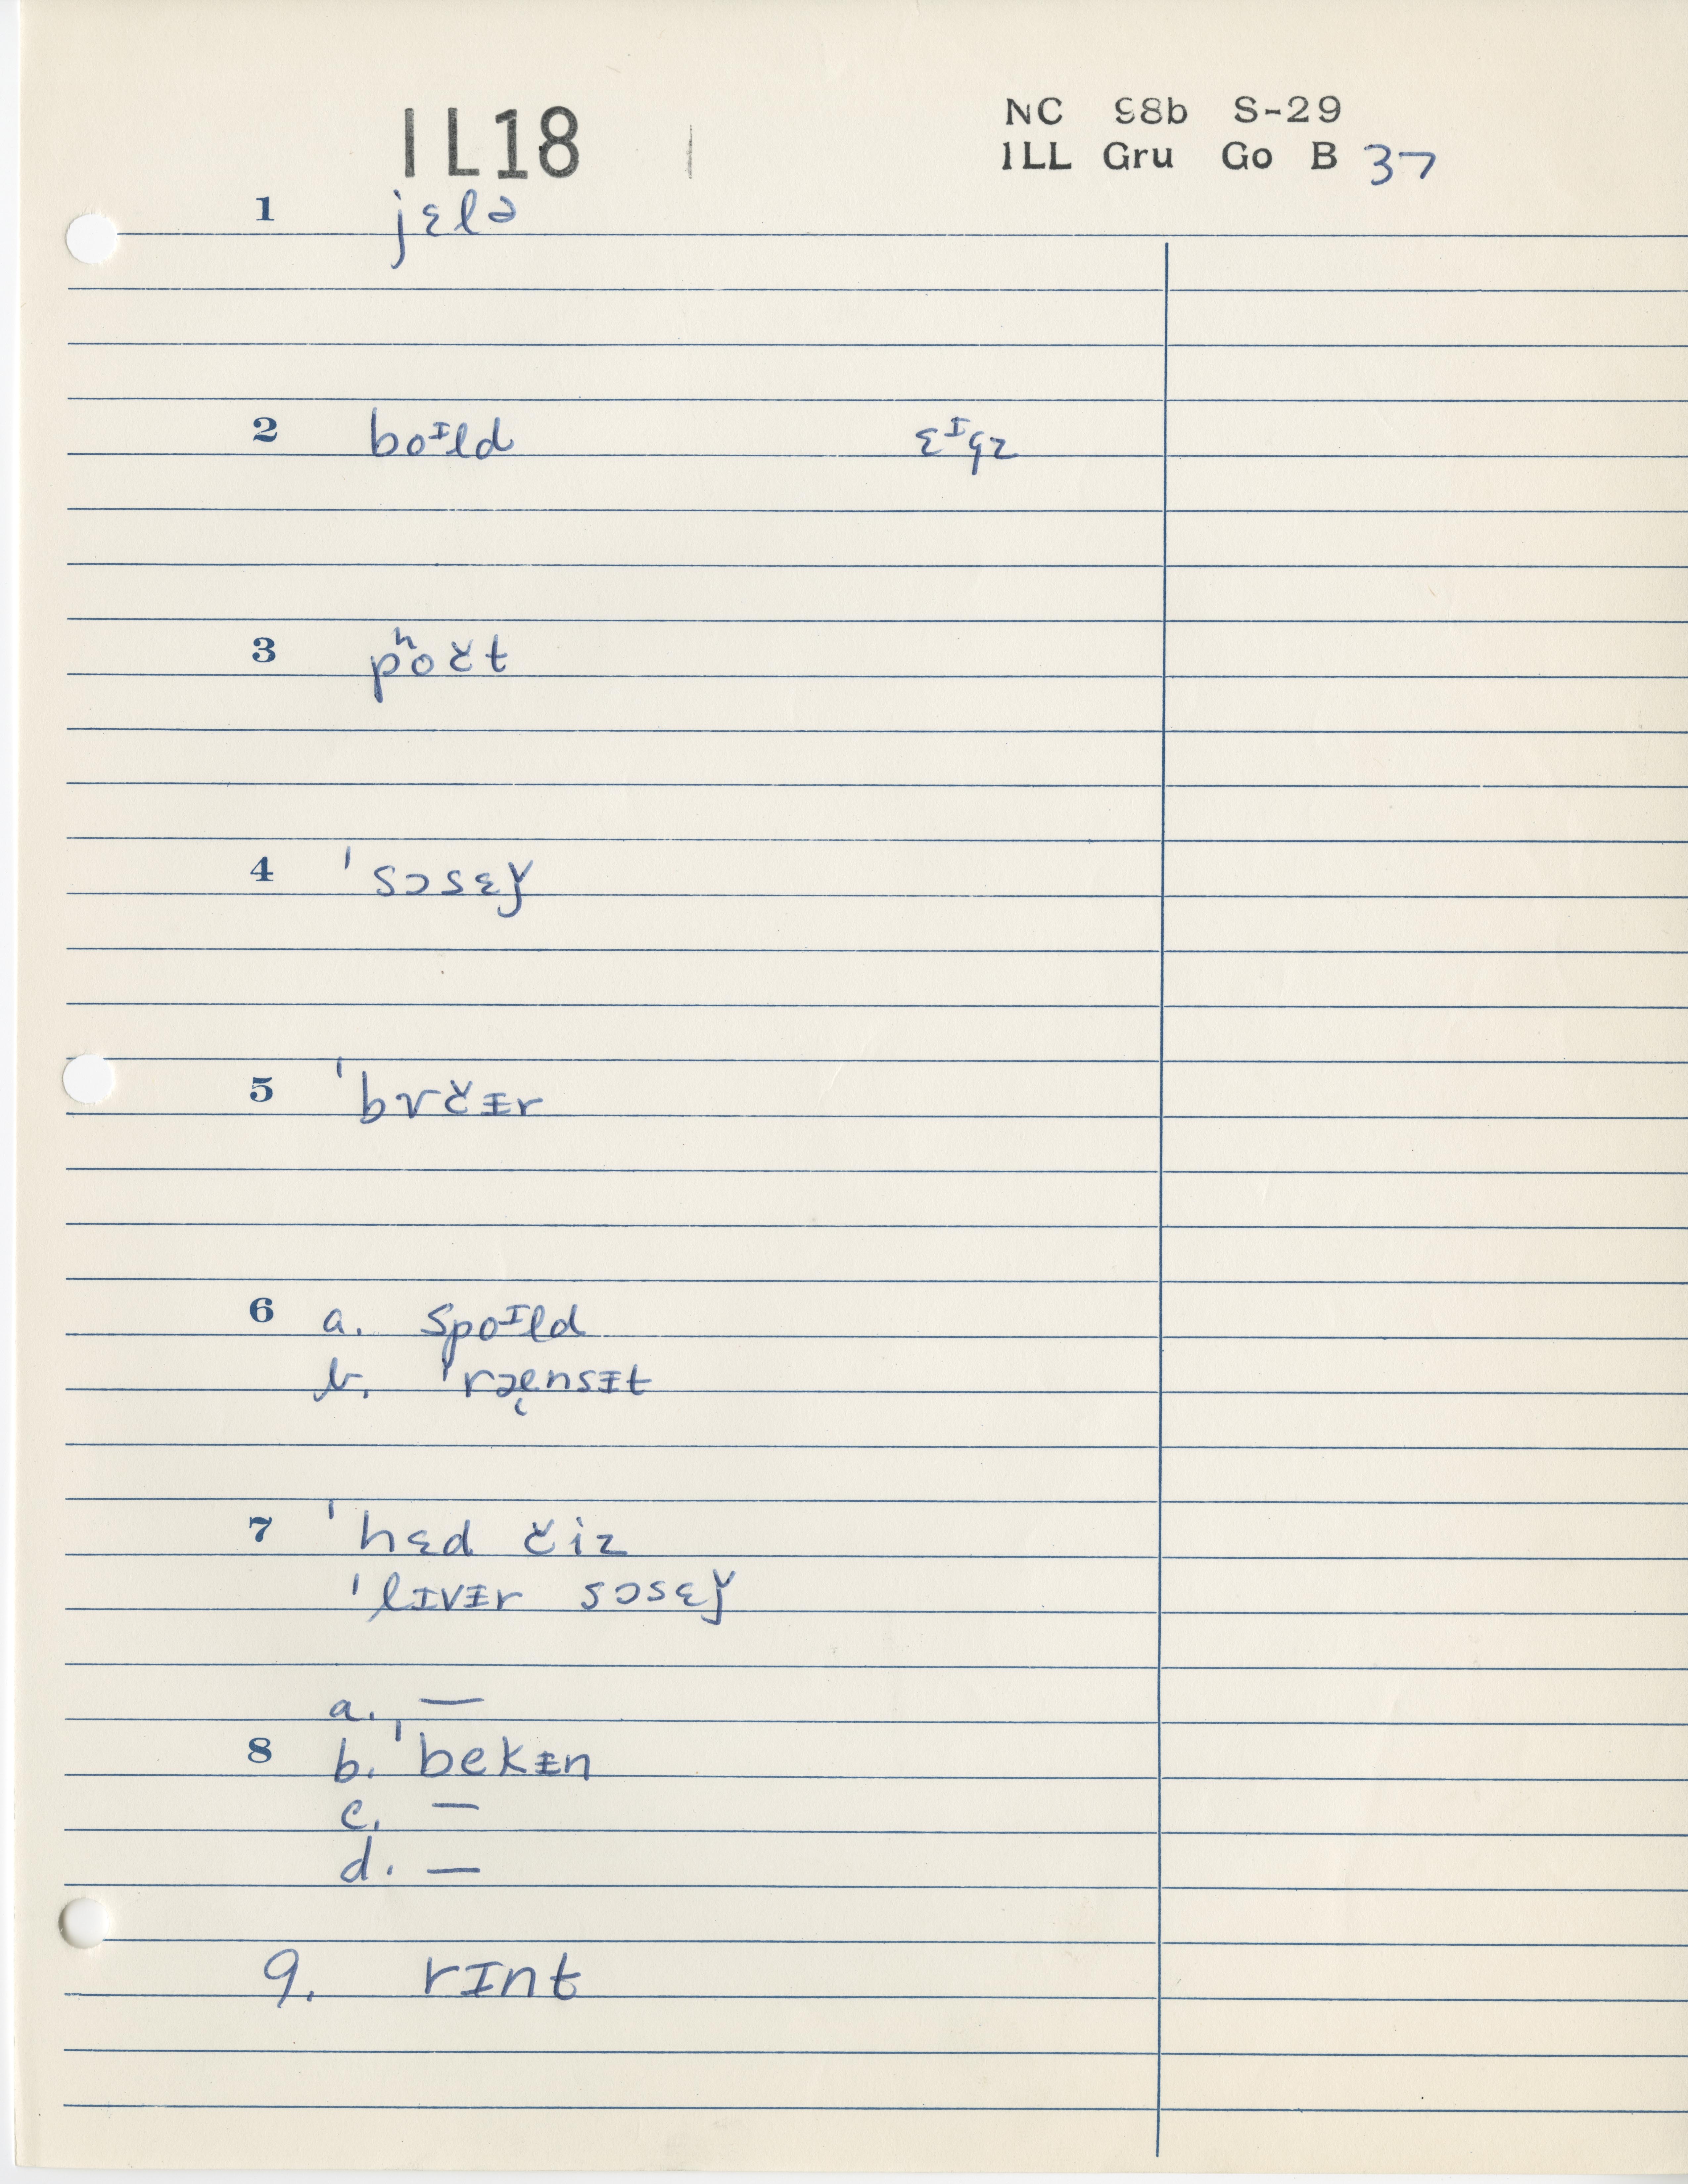 IL18
NC 98b S-29
ILL Gru Go B 37
1 jɛlə
2 boᴵld ɛᴵgz
3 pʰoɤ̆t
4 ˈsɔsɛǰ
5 ˈbʌčɨr
6 a. spoᴵld
b. ˈræ̨nsɨt
7 ˈhɛd čiz
ˈlɪvɨr sɔsɛǰ
a. —
8 b. ˈbekɨn
c. —
d. —
9. rɪnt